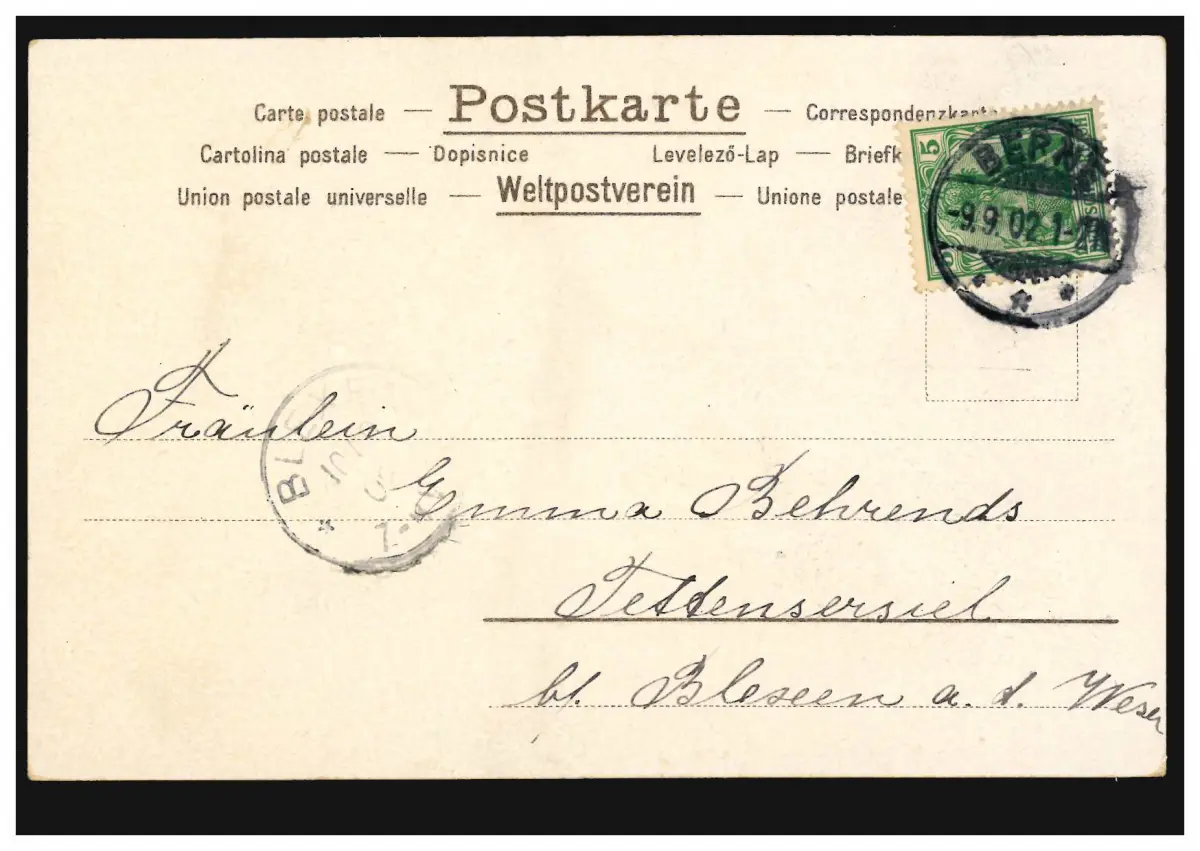 Carte postale — Postkarte — Correspondenzkarte
Cartolina postale — Dopisnice Levelező-Lap — Briefk
Union postale universelle — Weltpostverein — Unione postale
5
BERNE
-9.9.02 1-2N
Fräulein
BLEX
Emma Behrends
7-8
Tettensersiel
bf. Blexen a. d. Weser